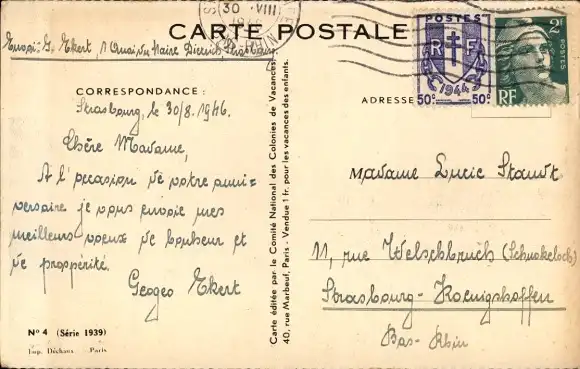 30 ·VIII
CARTE POSTALE
Envoi: G. Ekert 1 Quai du Maire Dietrich, Strasbourg
POSTES
RF
1944
50c 50c
2F
POSTES
RF
CORRESPONDANCE :
Strasbourg, le 30/8. 1946.
Chère Madame,
A l'occasion de votre anni=
versaire je vous envoie mes
meilleurs voeux de bonheur et
de prospérité.
Georges Ekert
N° 4 (Série 1939)
Imp. Déchaux - Paris
Carte éditée par le Comité National des Colonies de Vacances,
40, rue Marbeuf, Paris - Vendue 1 fr. pour les vacances des enfants.
ADRESSE
Madame Lucie Staudt
11, rue Welschbruch (Schnokeloch)
Strasbourg-Koenigshoffen
Bas-Rhin